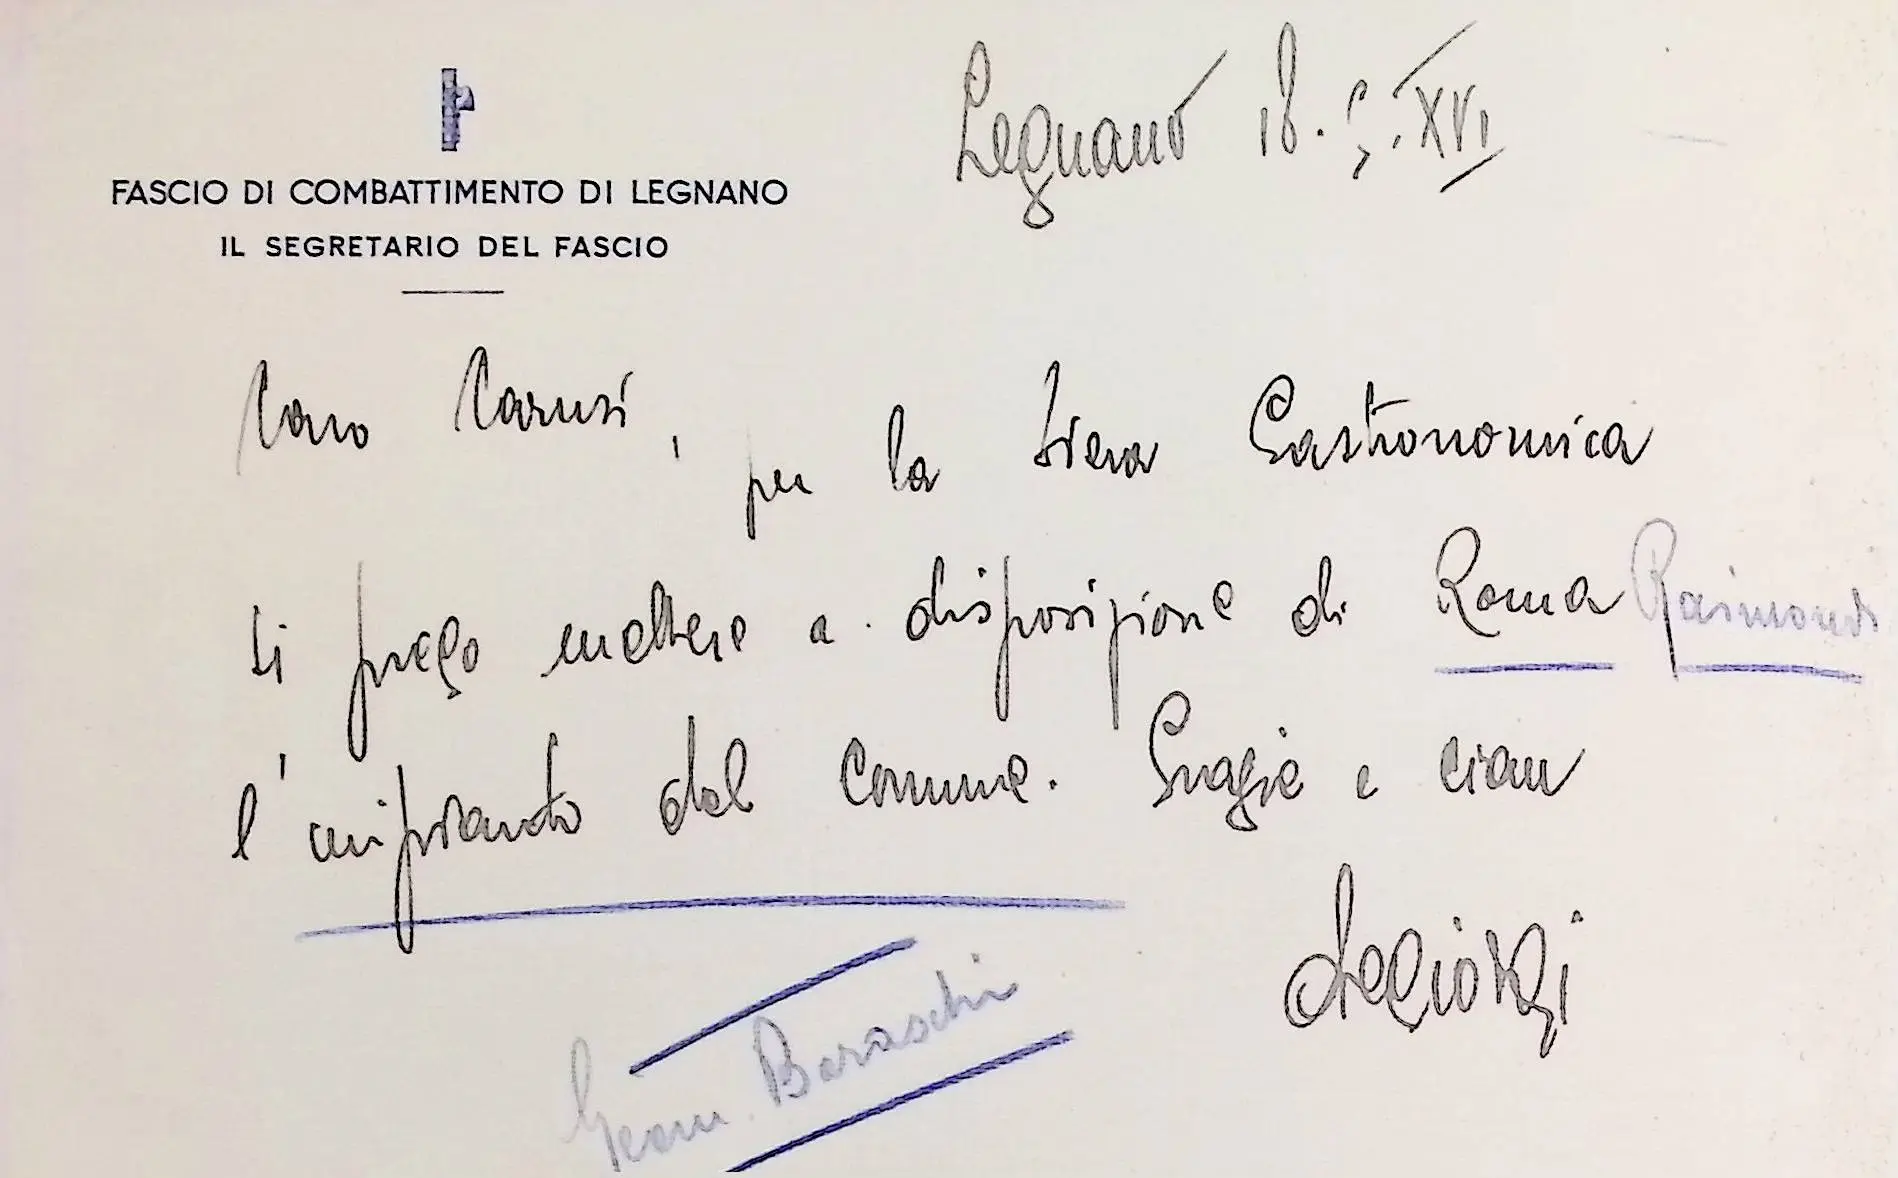 FASCIO DI COMBATTIMENTO DI LEGNANO
IL SEGRETARIO DEL FASCIO
Legnano 18. 5. XVI
Caro Carusi, per la fiera Gastronomica
ti prego mettere a disposizione di Roma Raimondi
l'impianto del comune. Grazie e ciau
DeGiorgi
Geom. Baraschi